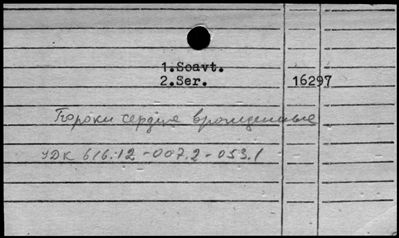 1.Soavt.
2.Ser. 16297
Пороки сердца врожденные
УДК 616.12-007.2-053.1